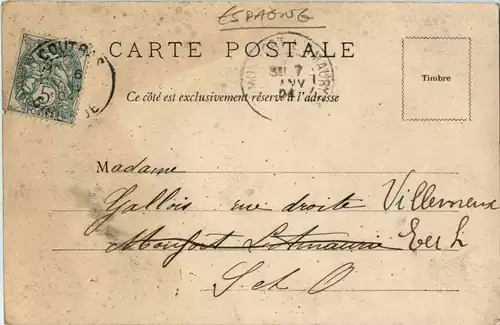 ESPAGNE
CARTE POSTALE
Timbre
Ce côté est exclusivement réservé à l'adresse
Madame
Gallois rue droite Villemeux
Monfort L'Amaurie
S et O